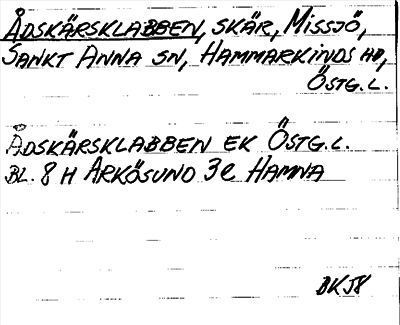 Ådskärsklabben, skär, Missjö,
Sankt Anna sn, Hammarkinds hd,
Östg.l.
Ådskärsklabben EK Östg.l.
Bl. 8 H Arkösund 3e Hamna
BKJ8